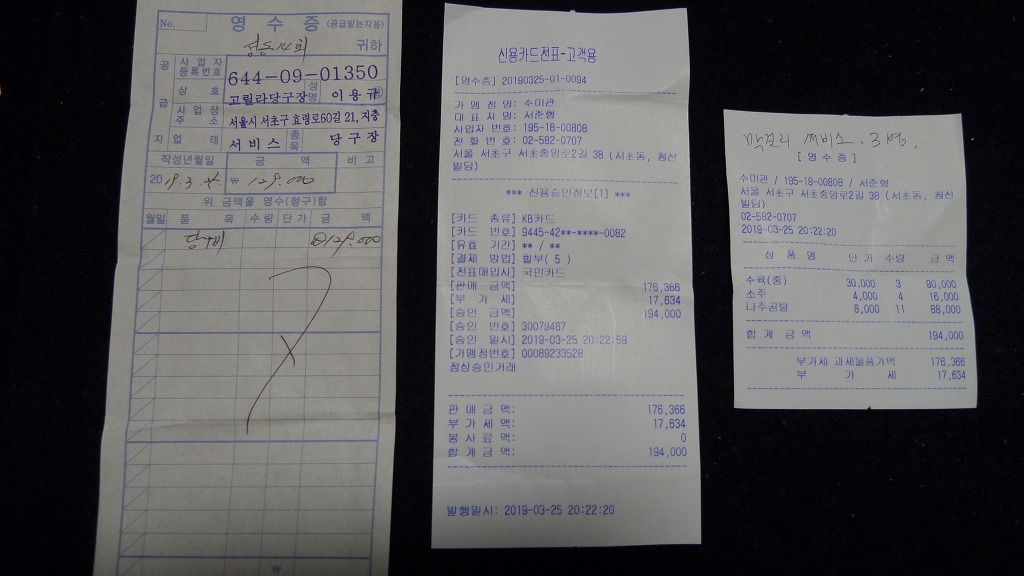 No.
영 수 증 (공급받는자용)
귀하
공 급 자
사업자 등록번호 644-09-01350
상 호 고릴라당구장 성명 이용규
사업장 주소 서울시 서초구 효령로60길 21, 지층
업 태 서비스 종목 당구장
작성년월일 금 액 비 고
2019. 3. ₩ 129.000
위 금액을 영수(청구)함
월일 품 목 수량 단가 금 액
당구비 129.000
₩
신용카드전표-고객용
[영수증] 20190325-01-0094
가 맹 점 명: 수미관
대 표 자 명: 서준형
사업자 번호: 195-18-00808
전 화 번 호: 02-582-0707
서울 서초구 서초중앙로2길 38 (서초동, 청신
빌딩)
*** 신용승인정보[1] ***
[카드 종류] KB카드
[카드 번호] 9445-42**-****-0082
[유효 기간] ** / **
[결제 방법] 할부( 5 )
[전표매입사] 국민카드
[판매 금액] 176,366
[부 가 세] 17,634
[승인 금액] 194,000
[승인 번호] 30079487
[승인 일시] 2019-03-25 20:22:59
[가맹점번호] 00089233528
정상승인거래
판 매 금 액: 176,366
부 가 세 액: 17,634
봉 사 료 액: 0
합 계 금 액: 194,000
발행일시: 2019-03-25 20:22:20
막걸리 써비스. 3병.
[ 영 수 증 ]
수미관 / 195-18-00808 / 서준형
서울 서초구 서초중앙로2길 38 (서초동, 청신
빌딩)
02-582-0707
2019-03-25 20:22:20
상 품 명 단 가 수량 금 액
수육(중) 30,000 3 90,000
소주 4,000 4 16,000
나주곰탕 8,000 11 88,000
합 계 금 액 194,000
부가세 과세물품가액 176,366
부 가 세 17,634